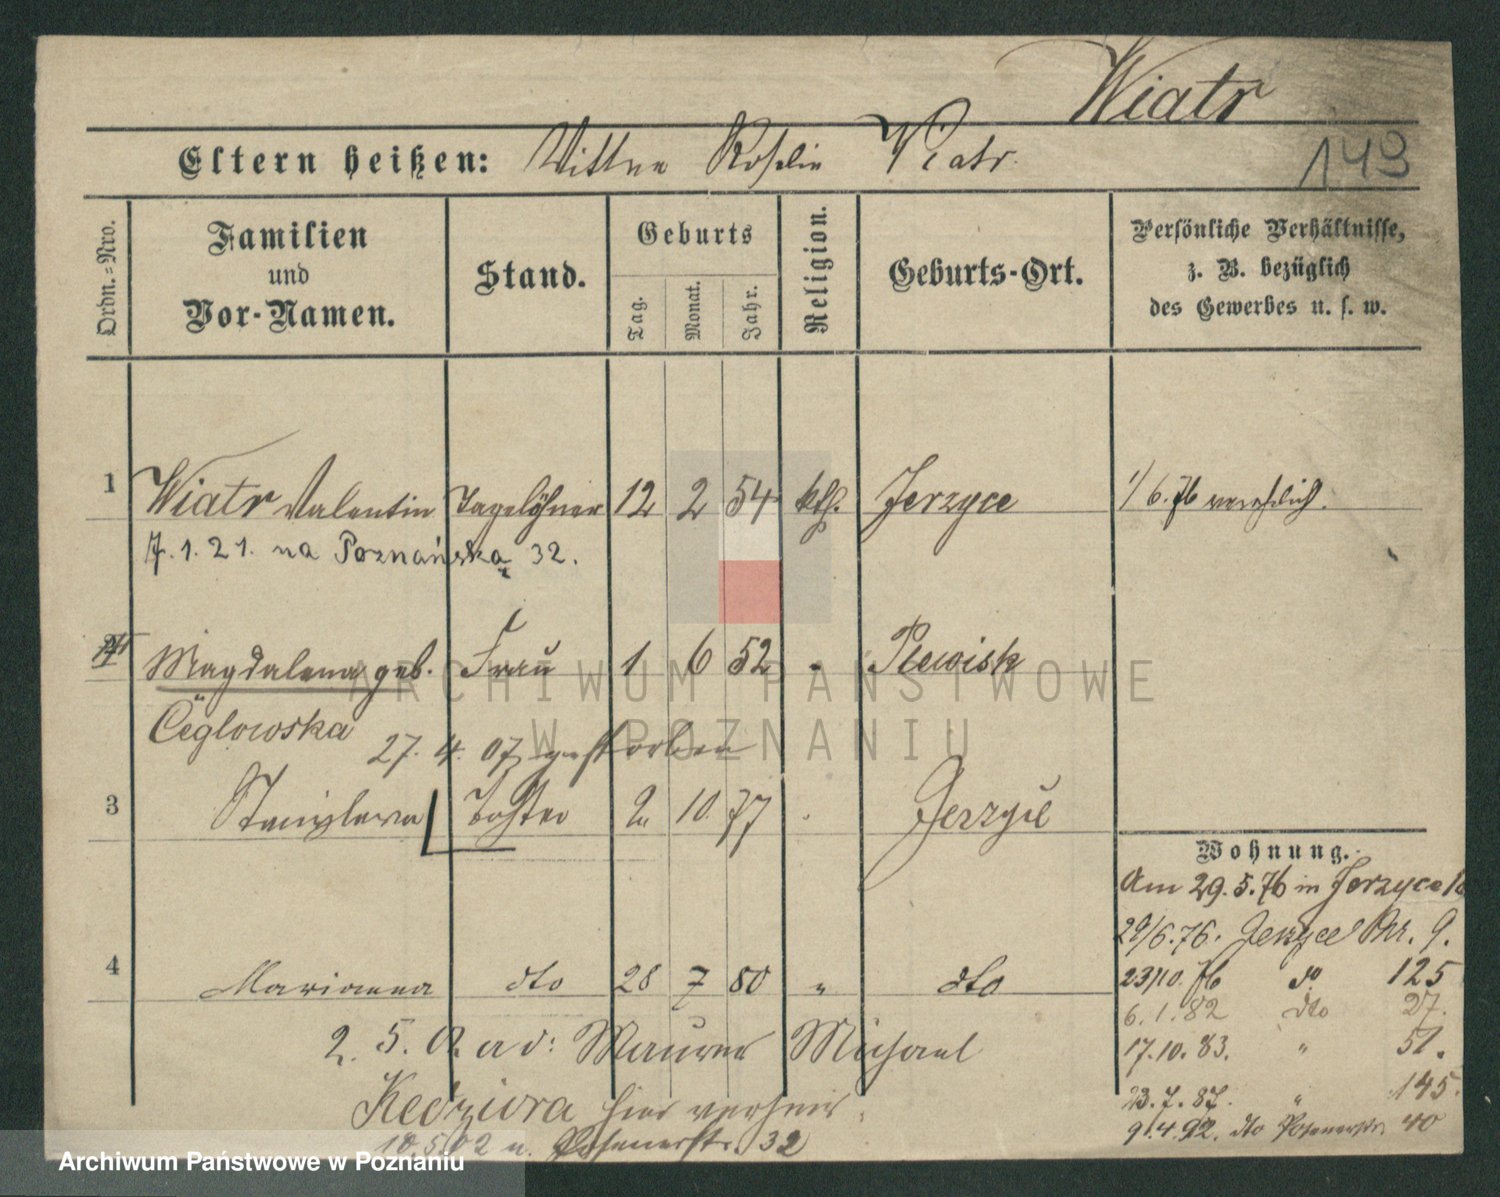 Wiatr
149
Eltern heißen: Wittwe Roselie Wiatr.
Ordn.=Nro.
Familien und Vor-Namen.
Stand.
Geburts
Tag. Monat. Jahr.
Religion.
Geburts-Ort.
Persönliche Verhältnisse, z. B. bezüglich des Gewerbes u. s. w.
1 Wiatr Valentin Tagelöhner 12 2 54 kth. Jerzyce 1/6.76 verehelicht.
7.1.21. na Poznańską 32.
2 Magdalena geb. Frau 1 6 52 " Plewisk
Ceglowska
27. 4. 07 gestorben
3 Stanislawa Tochter 2 10 77 Jerzyce
4 Marianna dto 28 7 80 " dto
2. 5. 02 a d: Maurer Michael
Kedziora hier verheir.
10.5.02 n. Posenerstr. 32
Wohnung.
Am 29.5.76 in Jerzyce
29/6.76. Jerzyce Nr. 9.
23/10.76 do 125
6.1.82 dto 27.
17.10.83. " 51.
23.7.87. " 145.
91.4.92. dto Posenerstr. 40
ARCHIWUM PAŃSTWOWE
W POZNANIU
Archiwum Państwowe w Poznaniu